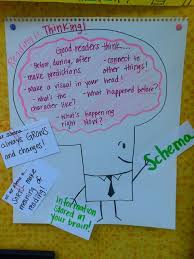 Reading is Thinking!
Good readers think...
- before, during, after
- connect to other things!
- make predictions
- Make a visual in your head!
- what's the character like?
- What happened before?
- What's happening right now?
always GROWS and changes!
Schema
make meaning of reading!
Information stored in your brain!